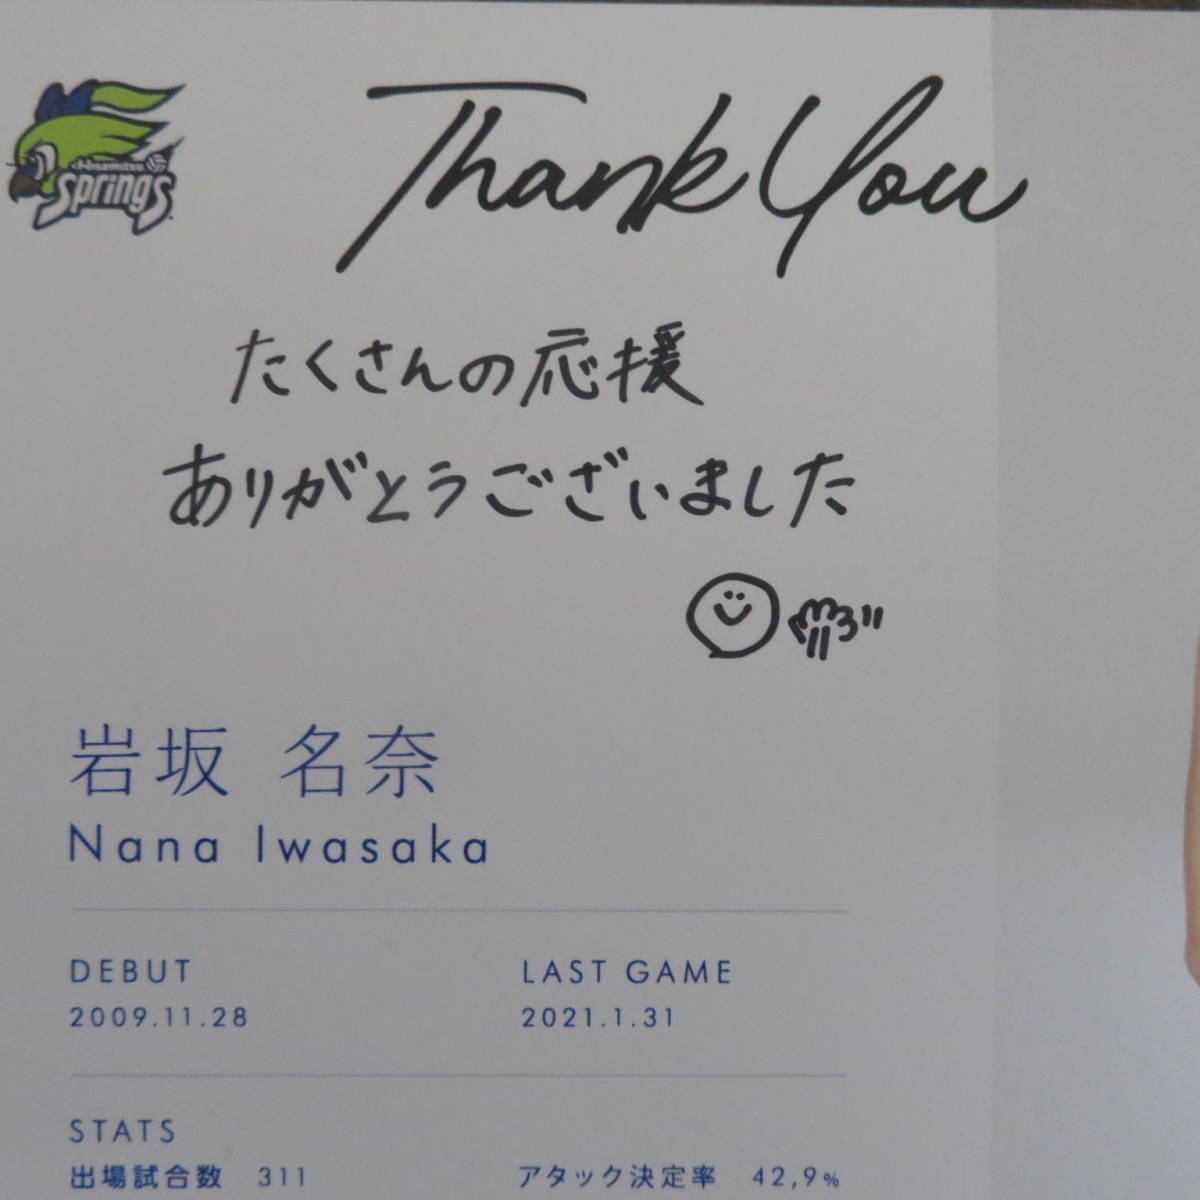 Hisamitsu
Springs
Thank You
たくさんの応援
ありがとうございました
岩坂 名奈
Nana Iwasaka
DEBUT
2009.11.28
LAST GAME
2021.1.31
STATS
出場試合数 311
アタック決定率 42,9%